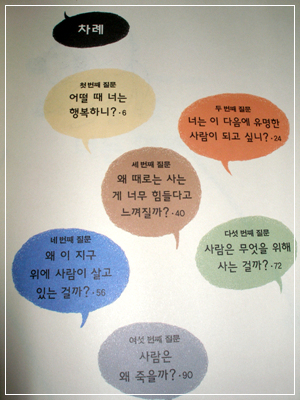 차례
첫 번째 질문
어떨 때 너는
행복하니? · 6
두 번째 질문
너는 이 다음에 유명한
사람이 되고 싶니? · 24
세 번째 질문
왜 때로는 사는
게 너무 힘들다고
느껴질까? · 40
네 번째 질문
왜 이 지구
위에 사람이 살고
있는 걸까? · 56
다섯 번째 질문
사람은 무엇을 위해
사는 걸까? · 72
여섯 번째 질문
사람은
왜 죽을까? · 90